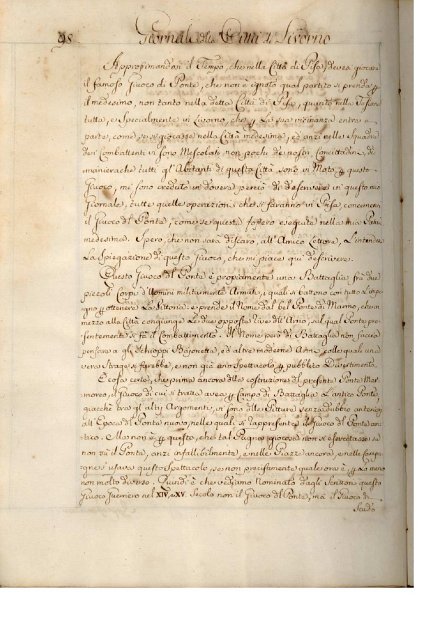 98 Giornale della Città di Livorno
Approssimandosi il Tempo, che nella Città di Pisa, deve si giocare
il famoso Giuoco di Ponte, che non è ignoto qual partito si prenda p
il medesimo, non tanto nella detta Città di Pisa, quanto nella Toscana
tutta, e Specialmente in Livorno, che p La sua vicinanza entra a
parte, come se si giocasse nella Città medesima, ed anzi nelle Squadre
dei Combattenti vi sono Mescolati non pochi de nostri Concittadini, di
maniera che tutti gli Abitanti di questa Città sono in Moto p questo
Giuoco, mi sono creduto in dovere perciò di descrivere in questo mio
Giornale, tutte quelle operazioni che si faranno in Pisa concernenti
il Giuoco del Ponte, come se queste fossero eseguite nella mia Patria
medesima. Spero, che non sarà discaro, all'Amico Lettore, L'intendere
La Spiegazione di questo Giuoco, che mi piace qui descrivere.
Questo Giuoco del Ponte è propriamente una Battaglia fra due
piccoli Corpi d'Uomini militarmente Armati, i quali si battono con tutto l'impe-
gno p ottenere La Vittoria, e prende il Nome dal bel Ponte di Marmo, che in
mezzo alla Città congiunge Le due opposte Rive d'Arno, sul qual Ponte pre-
sentemente si fà il Combattimento. Il Nome però di Battaglia non faccia
pensare a gli Schioppi Bajonetta, ed altre moderne Armi, colle quali una
vera Strage si farebbe, e non già uno Spettacolo, p pubblico Divertimento.
È cosa certa, che prima ancora della costruzione del presente Ponte Mar-
moreo, il Giuoco di cui si tratta aveva p Campo di Battaglia L'antico Ponte,
giacchè tra gl'altri Argomenti, vi sono delle Pitture senza dubbio anteriori
all'Epoca del Ponte nuovo, nelle quali si rappresenta il Giuoco del Ponte an-
tico. Ma non è p questo, che tal Pugna giocosa non si esercitasse se
non sù il Ponte, anzi infallibilmente, e nelle Piazze ancora, e nelle Campa-
gne si usava questo Spettacolo, se non precisamente quale ora è, p lo meno
non molto diverso. Quindi è che vediamo Nominato dagli Scrittori questo
Giuoco Guerriero nel XIV, e XV. Secolo non il Giuoco del Ponte, ma il Giuoco di
Scudo